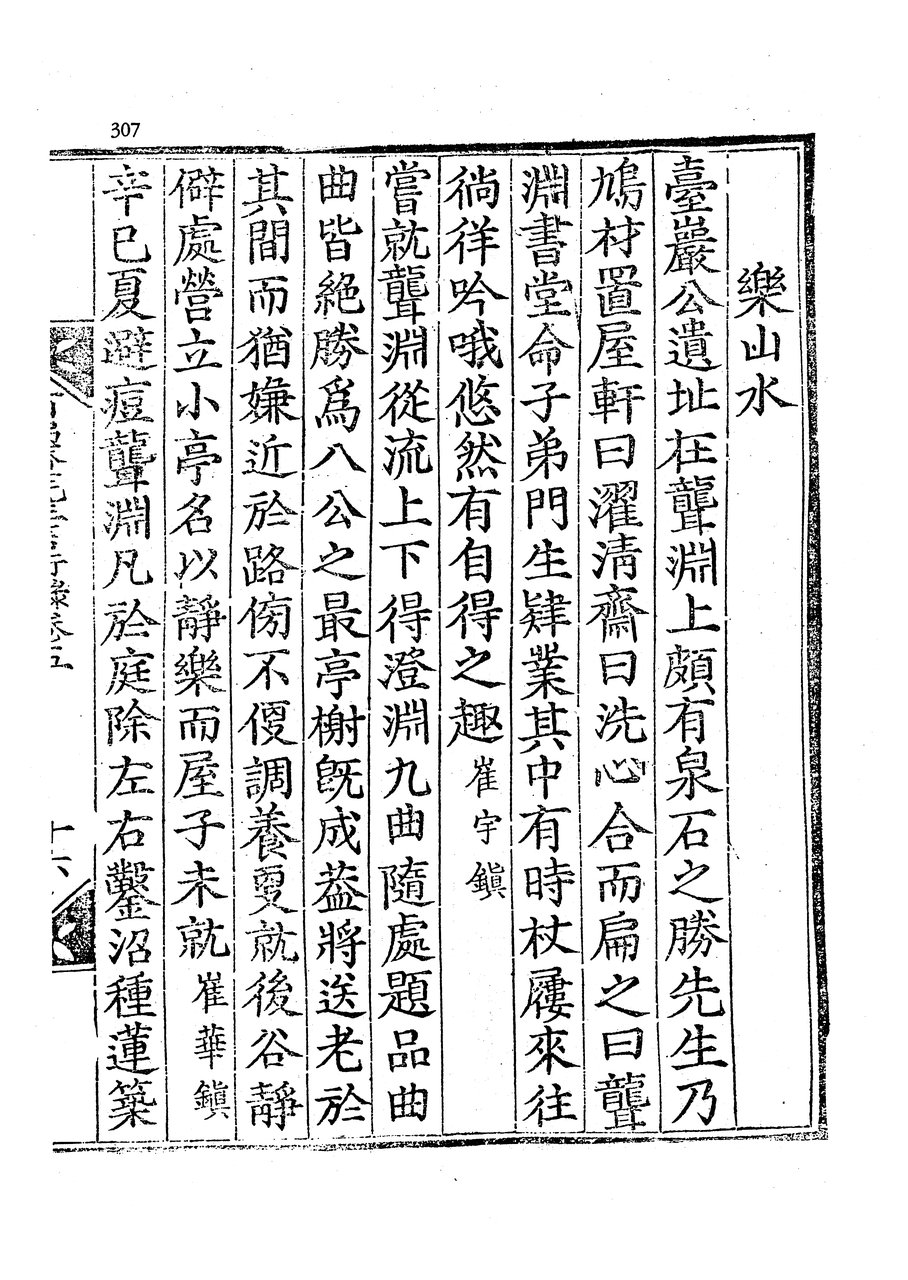 307
樂山水
臺巖公遺址在聾淵上頗有泉石之勝先生乃
鳩材置屋軒曰濯淸齋曰洗心合而扁之曰聾
淵書堂命子弟門生肄業其中有時杖屨來往
徜徉吟哦悠然有自得之趣崔宇鎭
嘗就聾淵從流上下得澄淵九曲隨處題品曲
曲皆絶勝爲八公之最亭榭旣成葢將送老於
其間而猶嫌近於路傍不便調養夏就後谷靜
僻處營立小亭名以靜樂而屋子未就崔華鎭
辛巳夏避痘聾淵凡於庭除左右鑿沼種蓮築
言行錄卷五
十六